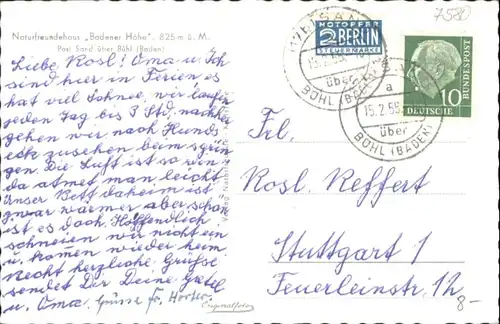 Naturfreundehaus „Badener Höhe“. 825 m ü. M.
Post Sand über Bühl (Baden)
Liebe Rosl! Oma u. Ich
sind hier in Ferien es
hat viel Schnee, wir laufen
jeden Tag bis 3 Std, nachher
gehen wir nach Hunds
eck zusehen beim sprin
gen. Die Luft ist so rein
da atmet man leicht
Unser Bett daheim ist
zwar wärmer aber schön
ist es doch. Hoffendlich
schneien wir nicht ein
u. komen wieder heim
Recht herzliche Grüsse
sendet Dir Deine Gretel
u. Oma. Grüsse Fr. Hörter
Originalfoto
NOTOPFER
2 BERLIN
STEUERMARKE
DEUTSCHE BUNDESPOST
10
15.2.58
a
über
BÜHL (BADEN)
7580
Frl.
Rosl. Reffert
Stuttgart 1
Feuerleinstr. 12
8-